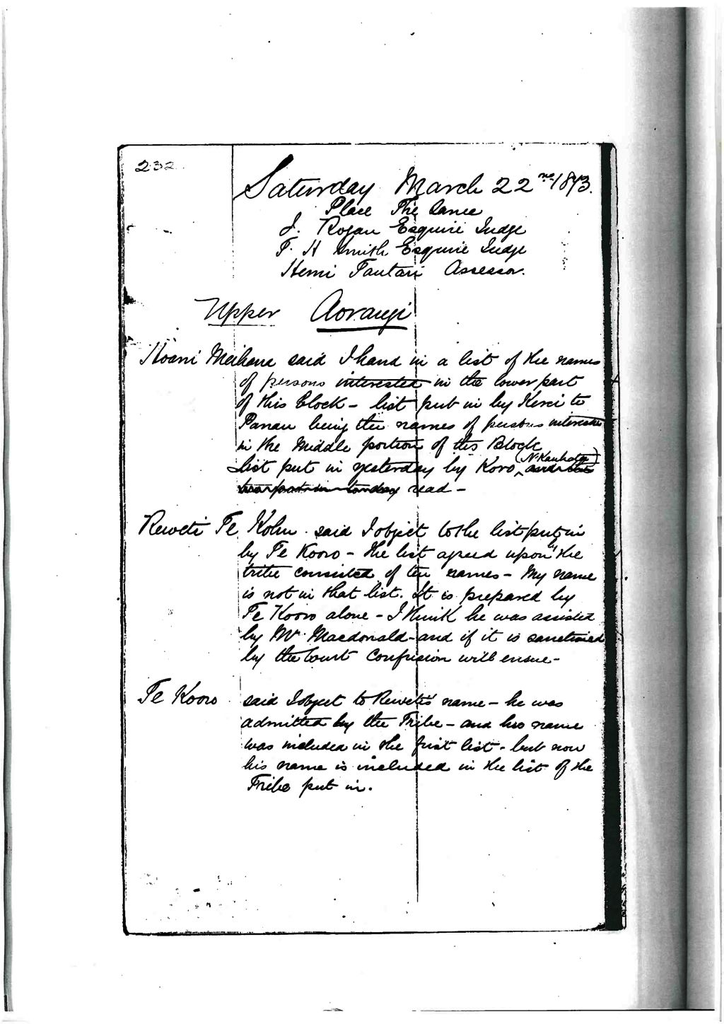 232
Saturday March 22nd 1873.
Place The Same
J. Rogan Esquire Judge
F. H Smith Esquire Judge
Hemi Tautari Assessor.
Upper Aorangi
Hoani Meihana said I hand in a list of the names
of persons interested in the lower part
of this Block – list put in by Kerei te
Panau being the names of persons interested
in the Middle portion of this Block
List put in yesterday by Koro, (N. Kauhata)
read –
Reweti Te Kohu said I object to the list put in
by Te Kooro – the list agreed upon by the
tribe consisted of ten names – My name
is not in that list. It is prepared by
Te Kooro alone – I think he was assisted
by Mr. Macdonald – and if it is sanctioned
by the Court Confusion will ensue –
Te Kooro said I object to Reweti's name – he was
admitted by the Tribe – and his name
was included in the first list – but now
his name is included in the list of the
Tribe put in.